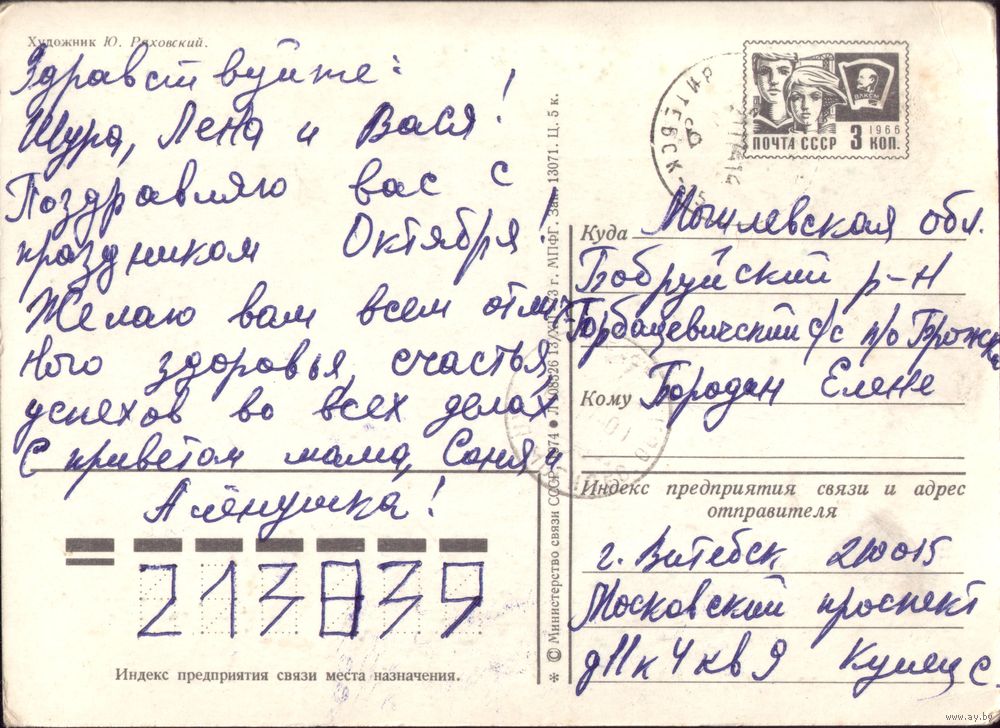 Художник Ю. Ряховский.
Здравствуйте:
Шура, Лена и Вася!
Поздравляю вас с
праздником Октября!
Желаю вам всем отлич
ного здоровья, счастья,
успехов во всех делах
С приветом мама, Соня и
Алёнушка!
213839
Индекс предприятия связи места назначения.
* © Министерство связи СССР, 1974 ● Л 108826 13/XII-73 г. МПФГ. Зак. 13071. Ц. 5 к.
ВИТЕБСК
ВЛКСМ
1966
ПОЧТА СССР 3 КОП.
Куда Могилевская обл.
Бобруйский р-н
Горбацевический с/с п/о Брожка
Кому Бородан Елене
Индекс предприятия связи и адрес
отправителя
г. Витебск 210015
Московский проспект
д 11 к 4 кв 9 Купец С.
www.ay.by